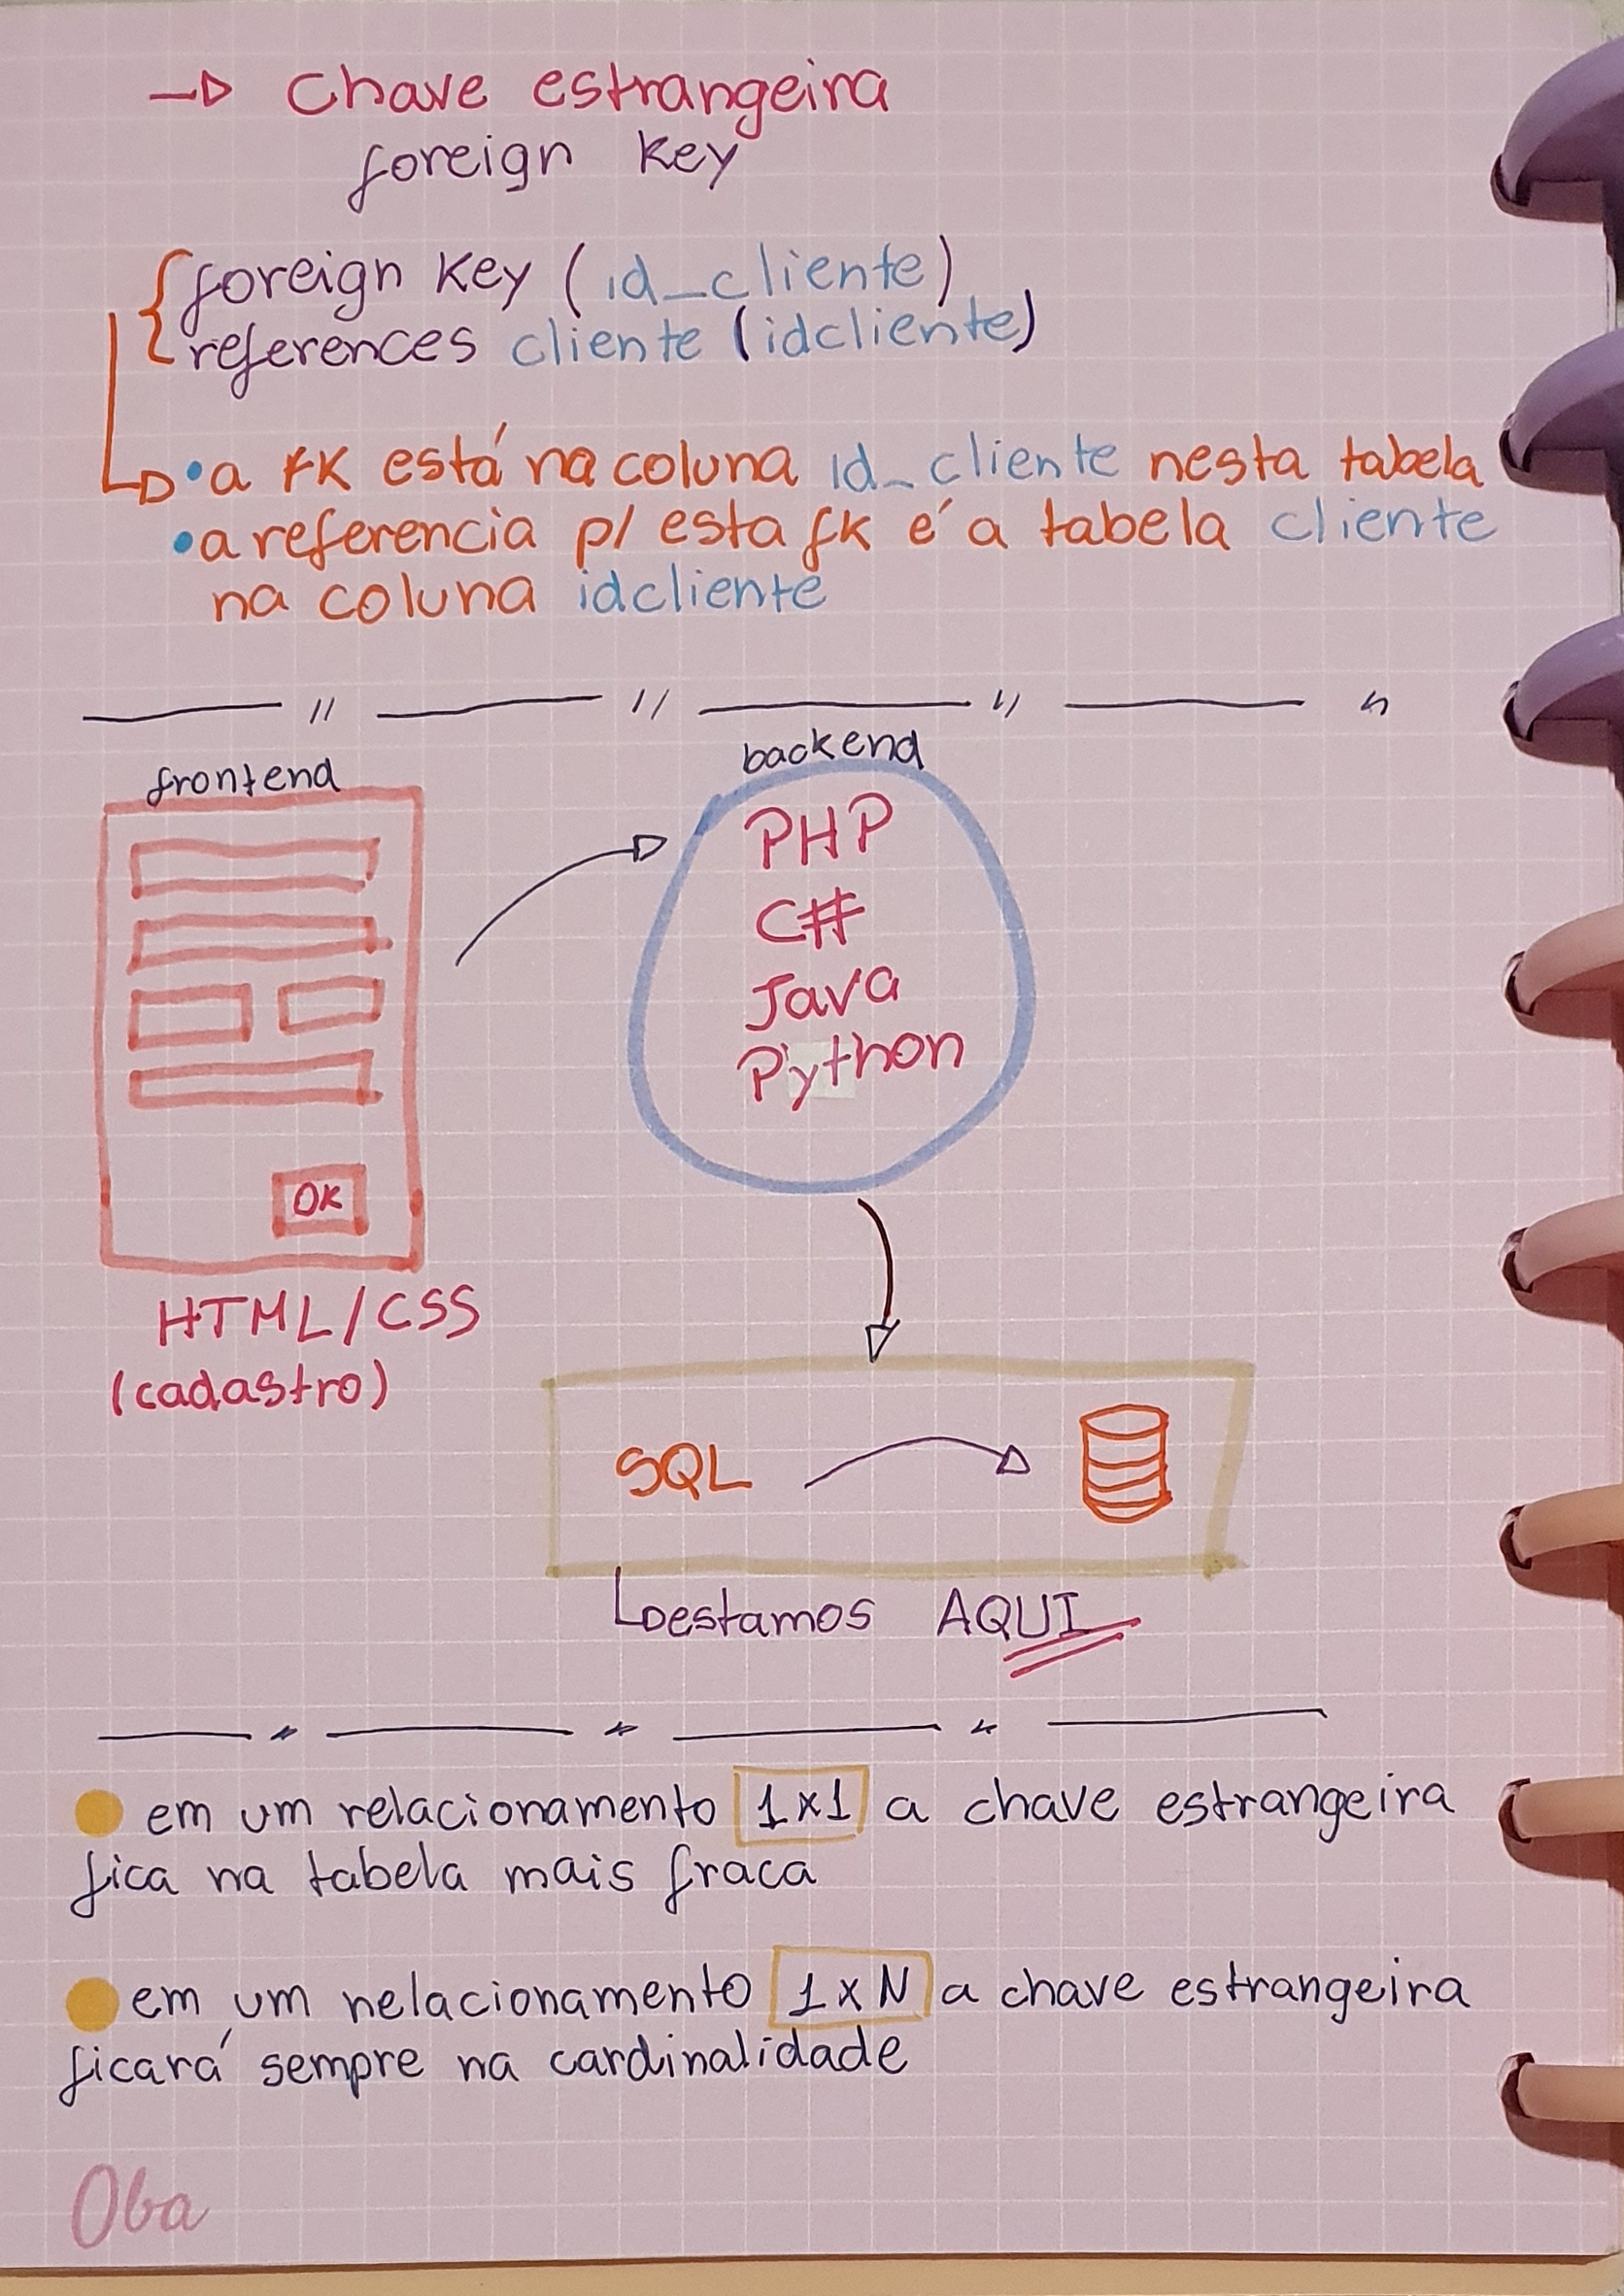 → Chave estrangeira
foreign key
foreign key (id_cliente)
references cliente (idcliente)
• a FK está na coluna id_cliente nesta tabela
• a referencia p/ esta fk é a tabela cliente
na coluna idcliente
frontend
backend
PHP
C#
Java
Python
OK
HTML/CSS
(cadastro)
SQL
estamos AQUI
em um relacionamento 1x1 a chave estrangeira
fica na tabela mais fraca
em um relacionamento 1xN a chave estrangeira
ficará sempre na cardinalidade
Oba